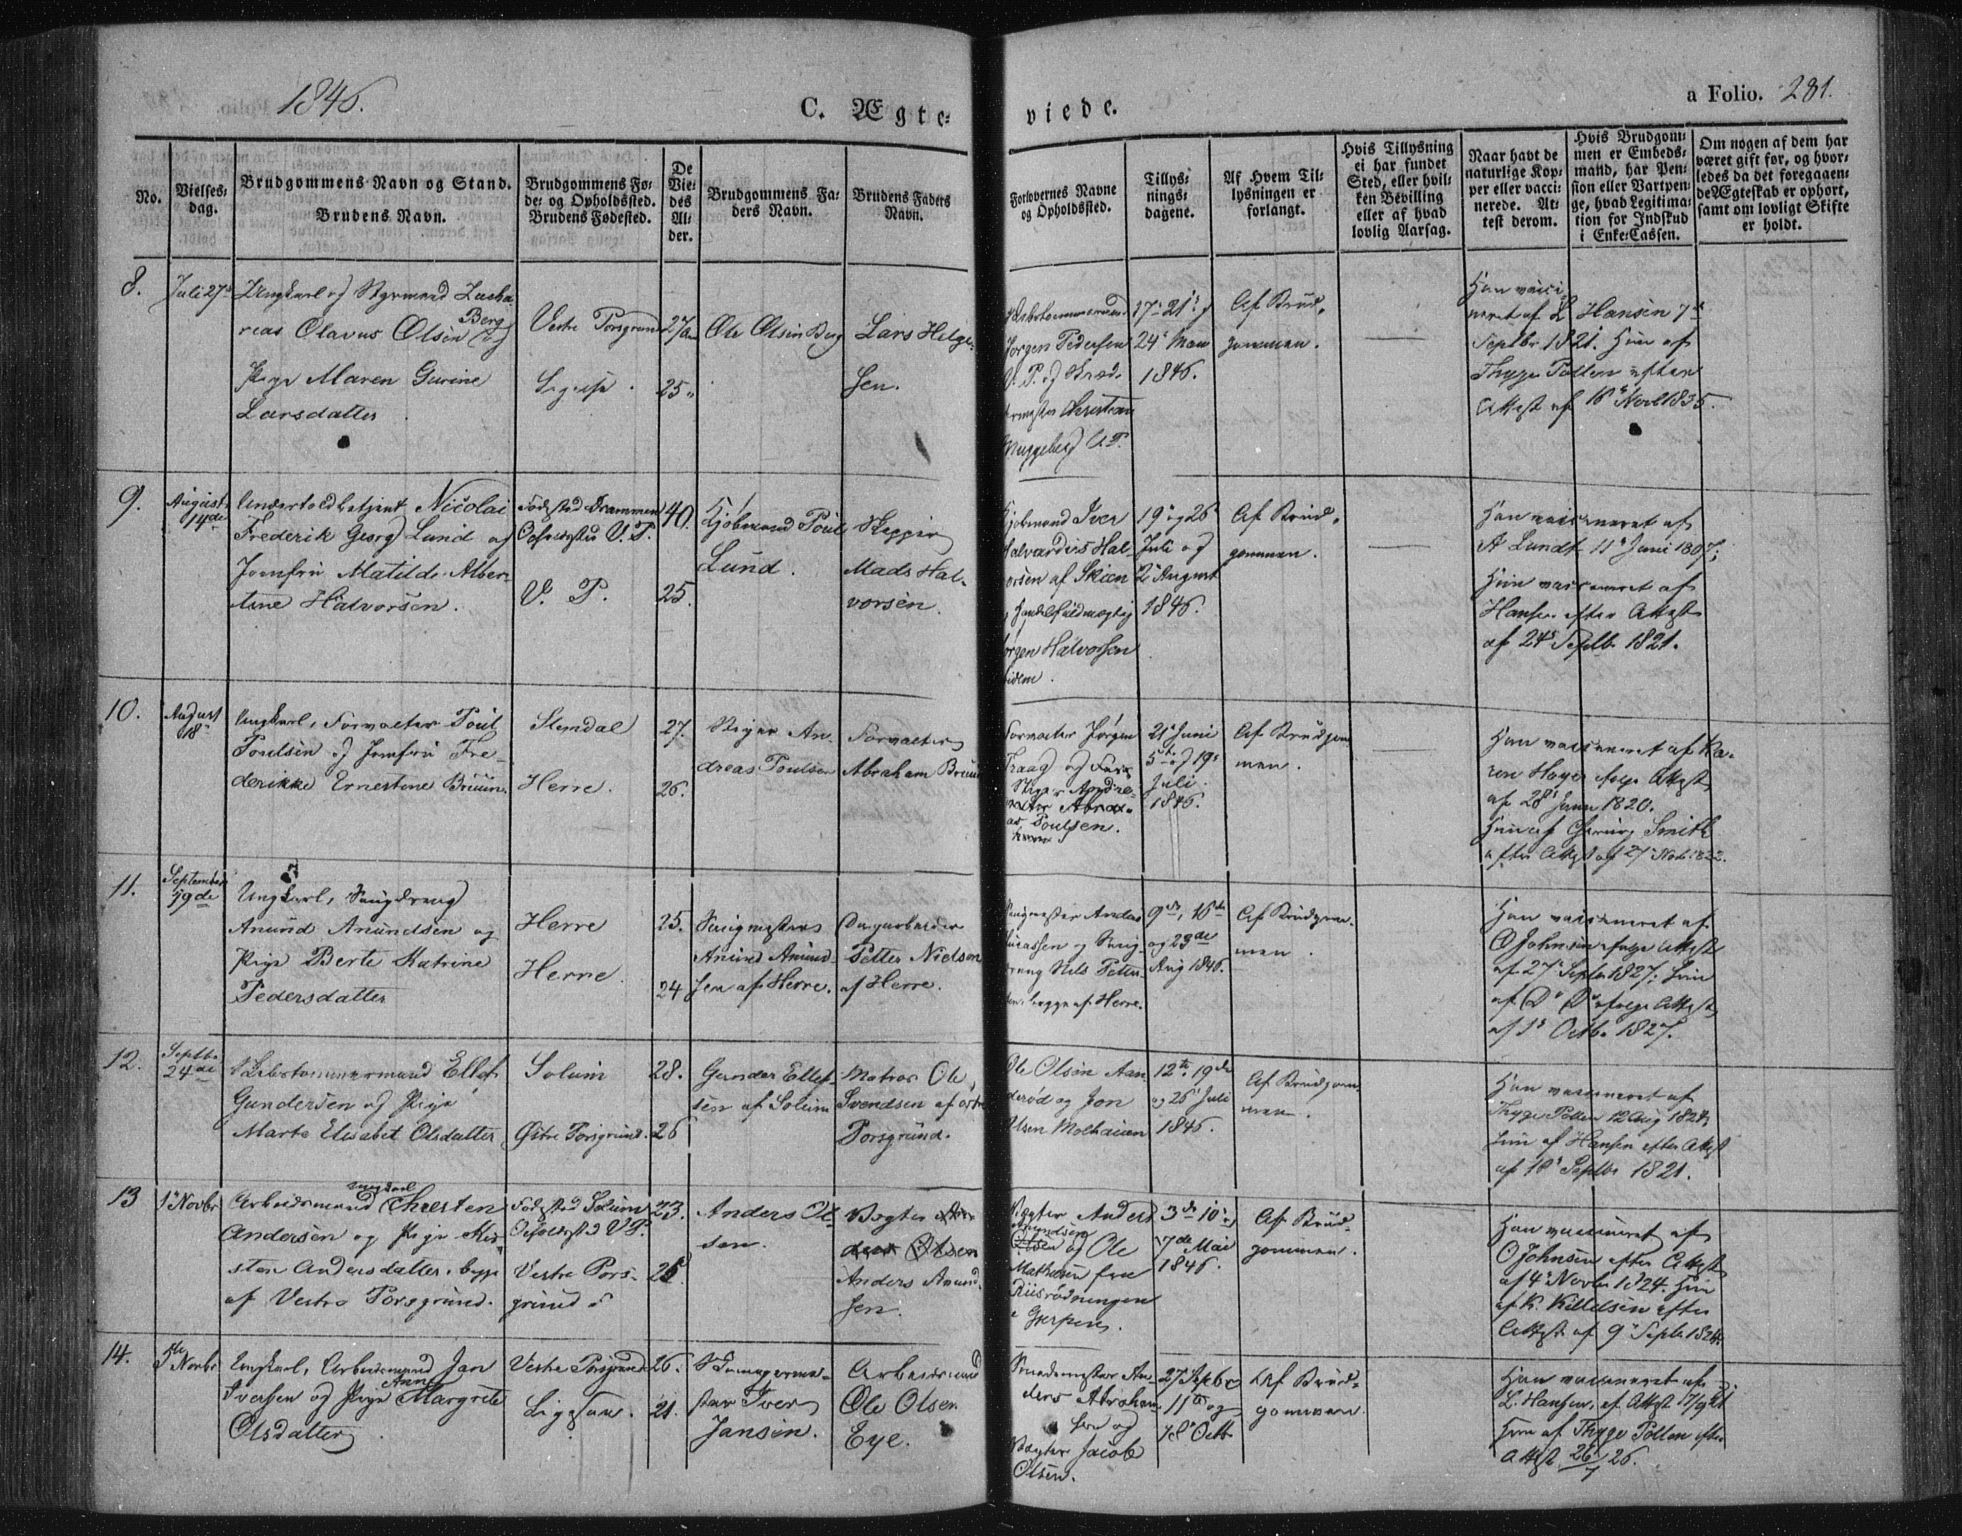 1846.
C. Ægte-
viede.
a Folio. 281.
No.
Vielses-
dag.
Brudgommens Navn og Stand.
Brudens Navn.
Brudgommens Fø-
de- og Opholdssted.
Brudens Fødested.
De
Vie-
des
Al-
der.
Brudgommens Fa-
ders Navn.
Brudens Faders
Navn.
Forlovernes Navne
og Opholdssted.
Tillys-
nings-
dagene.
Af Hvem Til-
lysningen er
forlangt.
Hvis Tillysning
ei har fundet
Sted, eller hvil-
ken Bevilling
eller af hvad
lovlig Aarsag.
Naar havt de
naturlige Kop-
per eller vacci-
nerede. At-
test derom.
Hvis Brudgom-
men er Embeds-
mand, har Pen-
sion eller Vartpen-
ge, hvad Legitima-
tion for Indskud
i Enke-Cassen.
Om nogen af dem har
været gift før, og hvor-
ledes da det foregaaen-
de Ægteskab er ophørt,
samt om lovligt Skifte
er holdt.
8.
Juli 27de
Ungkarl og Styrmand Zacha
rias Olavus Olsen Berg og
Pige Maren Gurine
Larsdatter
Vestre Porsgrund
Ligesaa.
27
25
Ole Olsen Berg
Lars Helge-
sen.
Jørgen Pedersen
V. P. og
Christian
Muggeberg V.P.
17de 21de og
24de Mai
1846.
Af Brud-
gommen.
Han vacci-
neret af L Hansen 7de
Septbr 1821. Hun af
Thyge Polten efter
Attest af 16de Novb 1835.
9.
August
14de
Undertoldbetjent Nicolai
Frederik Georg Lund og
Jomfru Matilde Alber-
tine Halvorsen.
Fødested Drammen
Opholdssted V. P.
V. P.
40.
25.
Kjøbmand Poul
Lund.
Skipper
Mads Hal-
vorsen.
Kjøbmand Iver
Halvorsen af Skien
og Handelsfuldmægtig
Jørgen Halvorsen
19de og 26
Juli og
2de August
1846.
Af Brud-
gommen.
Han vaccineret af
A Lundt 11de Juni 1807;
Hun vaccineret af
Hansen efter Attest
af 24de Septb 1821.
10.
August
18de
Ungkarl, Forvalter Poul
Poulsen og Jomfru Fre-
derikke Ernestine Bruun.
Stendal
Herre.
27.
26.
Stiger An-
dreas Poulsen
Forvalter
Abraham Bruun
Forvalter Jørgen
Fraag og
Stiger Andre-
as Poulsen.
21de Juni
5te og 19de
Juli
1846.
Af Brudgom-
men.
Han vaccineret af Ka-
ren Høyer efter Attest
af 28de Juni 1820.
Hun af Chirurg Smith
efter Attest af 27de Novb 1822.
11.
September
19de
Ungkarl, Saugdreng
Anund Anundsen og
Pige Berte Katrine
Pedersdatter
Herre
Herre.
25.
24
Saugmester
Anund Anund-
sen af Herre.
Dagarbeider
Petter Nielsen
af Herre.
Saugmester Anders
og Saug-
dreng Nils Petter
begge af Herre.
9de, 16de
og 23de
Aug 1846.
Af Brudgom-
men.
Han vaccineret af
O Johnsen efter Attest
af 27de Septb 1827; Hun
af Do Do efter Attest
af 1ste Octb. 1827.
12.
Septb.
24de
Skibstømmermand Ellef
Gundersen og Pige
Marte Elisabet Olsdatter
Solum
Østre Porsgrund.
28.
26
Gunder Ellef-
sen af Solum
Matros Ole
Svendsen af østre
Porsgrund.
Ole Olsen Aan-
derød og Jon
Olsen Molhauen
12te, 19de
og 26de Juli
1846.
Af Brudgom-
men.
Han vaccineret af
Thyge Polten 12 Aug 1824;
Hun af Hansen efter Attest
af 18de Septbr 1821.
13
1ste Novbr
Arbeidsmand ungkarl Chresten
Andersen og Pige Kir-
sten Andersdatter, begge
af Vestre Porsgrund.
Fødested Solum
Opholdssted V. P.
Vestre Pors-
grund
23.
26
Anders Ol-
sen.
Vægter
Olsen
Anders Anund-
sen.
Vægter Anders
Anundsen
Olsen og Ole
Mathisen fra
Riisrødningen
i Gjerpen.
3de 10de og
17de Mai
1846.
Af Brud-
gommen.
Han vaccineret af
O Johnsen efter Attest
af 4de Novbr 1824. Hun
af K. Kittelsen efter
Attest af 9de Septb 1824.
14.
5te Novbr
Ungkarl, Arbeidsmand Jan
Iversen og Pige Anne Margrete
Olsdatter
Vestre Porsgrund
Ligesaa.
26.
21.
Iver
Jansen.
Arbeidsmand
Ole Olsen
Eye.
Smedemester An-
ders Abraham-
sen og
Vægter Jacob
Olsen.
27 Septbr
11te og
18de Octb
Af Brud-
gommen.
Han vaccineret af
L. Hansen, ef. Attest 17/9 21
Hun af Thyge Polten efter
Attest 26/7 26.